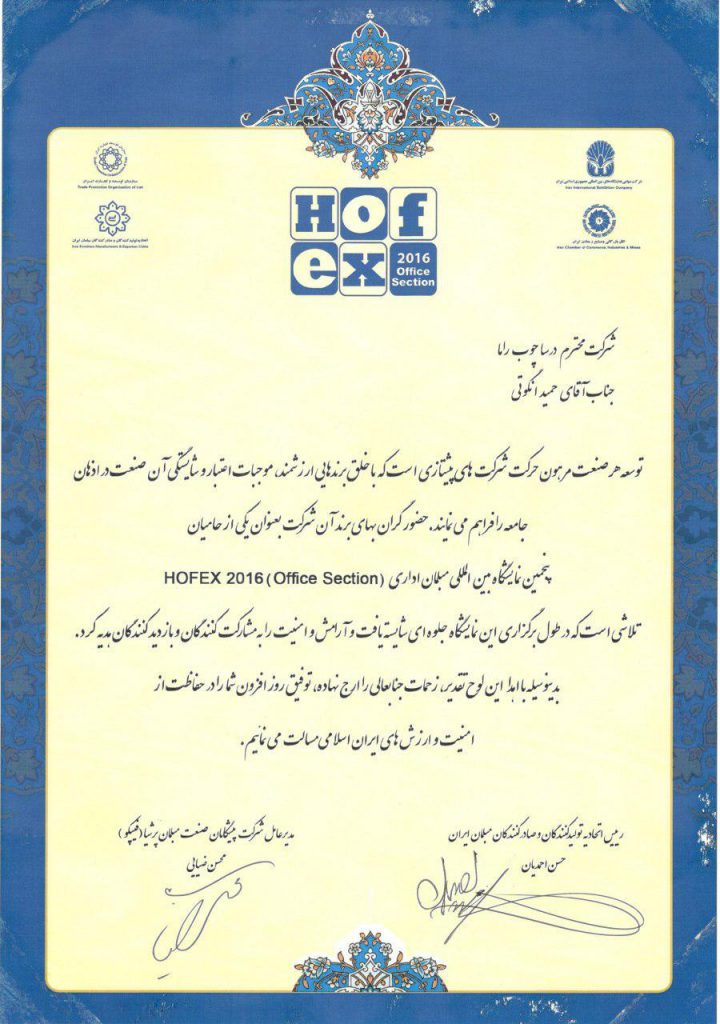 سازمان توسعه و تجارت ایران
Trade Promotion Organization of Iran
شرکت سهامی نمایشگاه های بین المللی جمهوری اسلامی ایران
Iran International Exhibition Company
اتحادیه تولیدکنندگان و صادرکنندگان مبلمان ایران
Iran Furniture Manufacturers & Exporters Union
اتاق بازرگانی و صنایع و معادن ایران
Iran Chamber of Commerce, Industries & Mines
Hof
ex
2016
Office
Section
شرکت محترم درسا چوب راما
جناب آقای حمید انکوتی
توسعه هر صنعت مرهون حرکت شرکت های پیشتازی است که با خلق برندهایی ارزشمند، موجبات اعتبار و شایستگی آن صنعت در اذهان
جامعه را فراهم می نمایند. حضور گران بهای برند آن شرکت بعنوان یکی از حامیان
پنجمین نمایشگاه بین المللی مبلمان اداری HOFEX 2016 (Office Section)
تلاشی است که در طول برگزاری این نمایشگاه جلوه ای شایسته یافت و آرامش و امنیت را به مشارکت کنندگان و بازدیدکنندگان هدیه کرد.
بدینوسیله با اهدا این لوح تقدیر، زحمات جنابعالی را ارج نهاده، توفیق روز افزون شما را در حفاظت از
امنیت و ارزش های ایران اسلامی مسالت می نمائیم.
رییس اتحادیه تولیدکنندگان و صادرکنندگان مبلمان ایران
حسن احمدیان
مدیرعامل شرکت پیشگامان صنعت مبلمان پرشیا (فیپکو)
محسن ضیایی